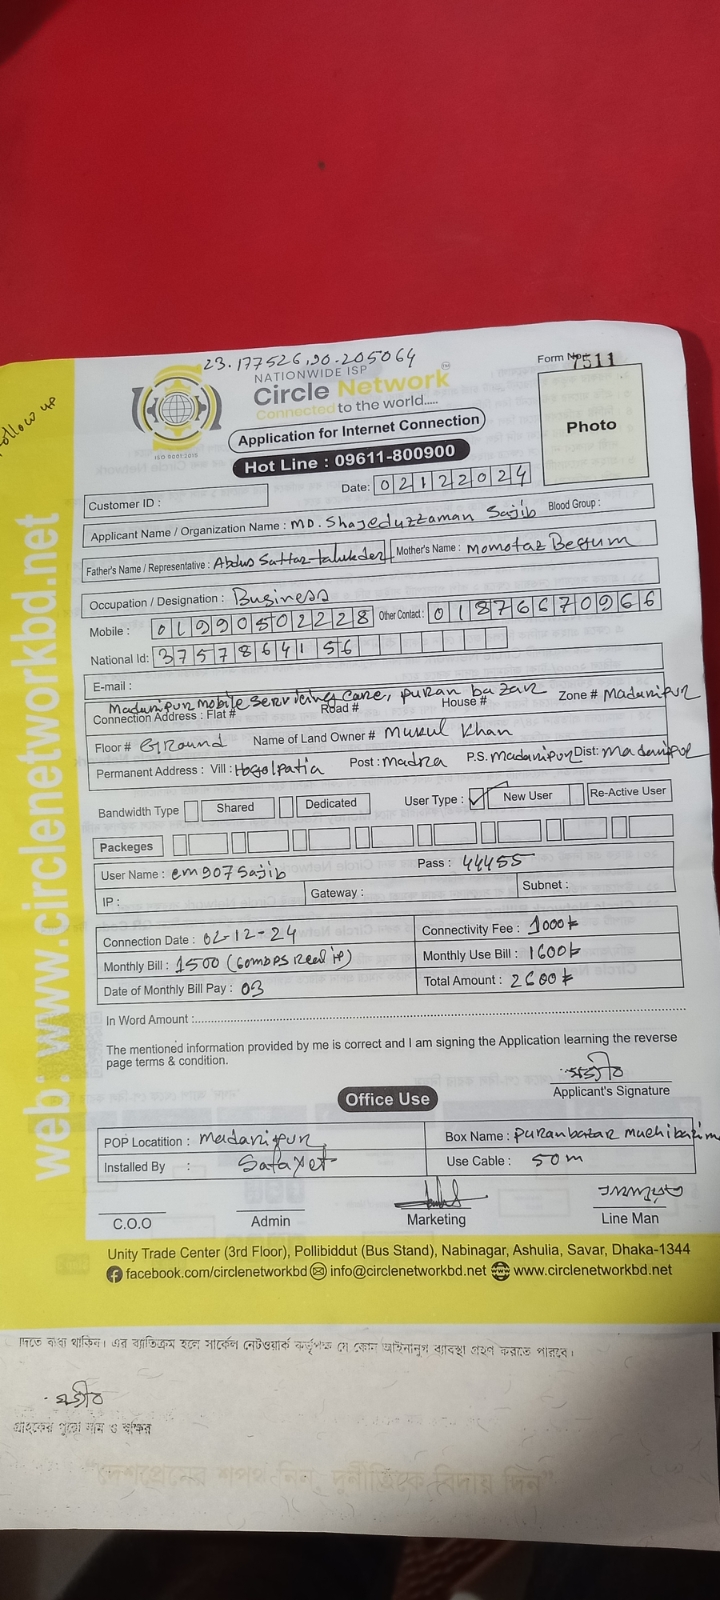 Follow up
23.177526,90.205064
NATIONWIDE ISP
Form No. 7511
Circle Network
Connected to the world.....
ISO 9001:2015
Application for Internet Connection
Photo
Hot Line : 09611-800900
Date: 02122024
Customer ID :
Applicant Name / Organization Name : MD. Shajeduzzaman Sajib Blood Group :
Father's Name / Representative : Abdus Sattar talukder Mother's Name : Momotaz Begum
Occupation / Designation : Business
Mobile : 01990502228 Other Contact : 01876670966
National Id: 3757864156
E-mail :
Madaripur mobile servicing care, puran bazar
Connection Address : Flat # Road # House # Zone # Madaripur
Floor # Ground Name of Land Owner # Mukul Khan
Permanent Address : Vill : Hogolpatia Post : madra P.S. Madaripur Dist: Madaripur
Bandwidth Type Shared Dedicated User Type : New User Re-Active User
Packeges
User Name : em907sajib Pass : 44455
IP : Gateway : Subnet :
Connection Date : 02-12-24 Connectivity Fee : 1000৳
Monthly Bill : 1500 (60mbps Real ip) Monthly Use Bill : 1600৳
Date of Monthly Bill Pay : 03 Total Amount : 2600৳
In Word Amount :
The mentioned information provided by me is correct and I am signing the Application learning the reverse
page terms & condition.
সজীব
Applicant's Signature
Office Use
POP Locatition : Madaripur Box Name : Puranbazar
Installed By : Safayet Use Cable : 50m
C.O.O Admin Marketing Line Man
Unity Trade Center (3rd Floor), Pollibiddut (Bus Stand), Nabinagar, Ashulia, Savar, Dhaka-1344
facebook.com/circlenetworkbd info@circlenetworkbd.net www.circlenetworkbd.net
web: www.circlenetworkbd.net
দিতে বাধ্য থাকিব। এর ব্যতিক্রম হলে সার্কেল নেটওয়ার্ক কর্তৃপক্ষ যে কোন আইনানুগ ব্যবস্থা গ্রহণ করতে পারবে।
সজীব
গ্রাহকের পুরো নাম ও স্বাক্ষর
"দেশপ্রেমের শপথ নিন, দুর্নীতিকে বিদায় দিন"